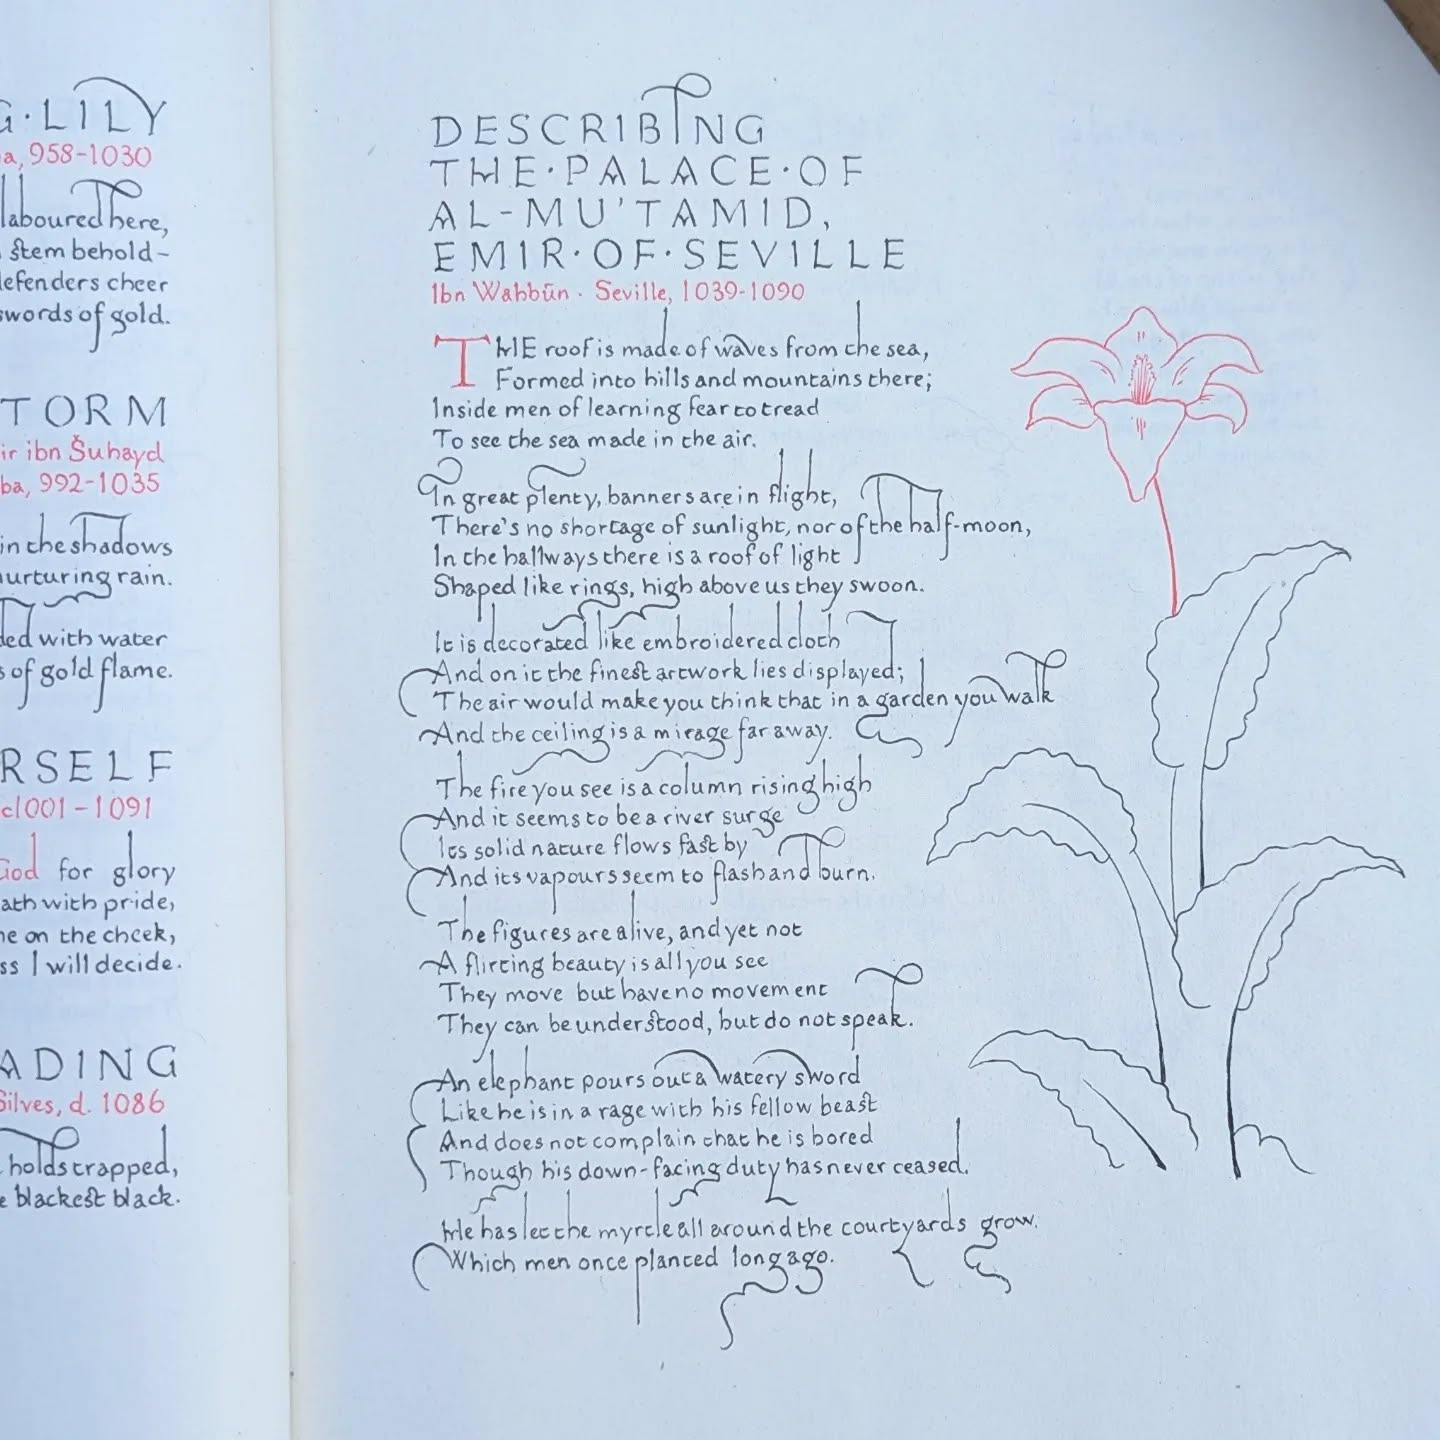 G·LILY
a, 958-1030
laboured There,
stem behold-
defenders cheer
swords of gold.
TORM
ir ibn Šuhayd
ba, 992-1035
in the shadows
nurturing rain.
ded with water
s of gold flame.
RSELF
c1001-1091
God for glory
ath with pride,
ne on the cheek,
ss I will decide.
ADING
Silves, d. 1086
holds trapped,
e blackest black.
DESCRIBING
THE·PALACE·OF
AL-MU'TAMID,
EMIR·OF·SEVILLE
Ibn Wahbūn · Seville, 1039-1090
THE roof is made of waves from the sea,
Formed into hills and mountains there;
Inside men of learning fear to tread
To see the sea made in the air.
In great plenty, banners are in flight,
There's no shortage of sunlight, nor of the half-moon,
In the hallways there is a roof of light
Shaped like rings, high above us they swoon.
It is decorated like embroidered cloth
And on it the finest artwork lies displayed;
The air would make you think that in a garden you walk
And the ceiling is a mirage far away.
The fire you see is a column rising high
And it seems to be a river surge
Its solid nature flows fast by
And its vapours seem to flash and burn.
The figures are alive, and yet not
A flirting beauty is all you see
They move but have no movement
They can be understood, but do not speak.
An elephant pours out a watery sword
Like he is in a rage with his fellow beast
And does not complain that he is bored
Though his down-facing duty has never ceased.
He has let the myrtle all around the courtyards grow.
Which men once planted long ago.